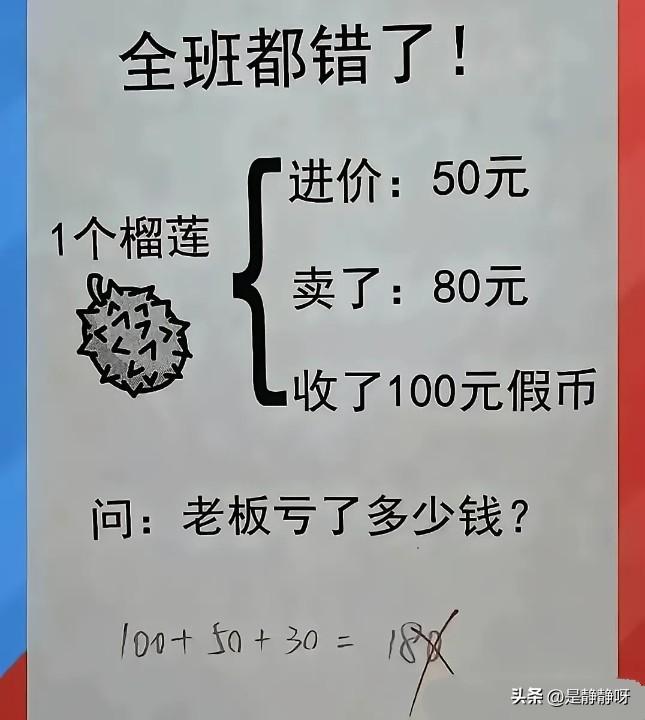 全班都错了！
1个榴莲
进价：50元
卖了：80元
收了100元假币
问：老板亏了多少钱？
100+50+30=180
头条 @是静静呀